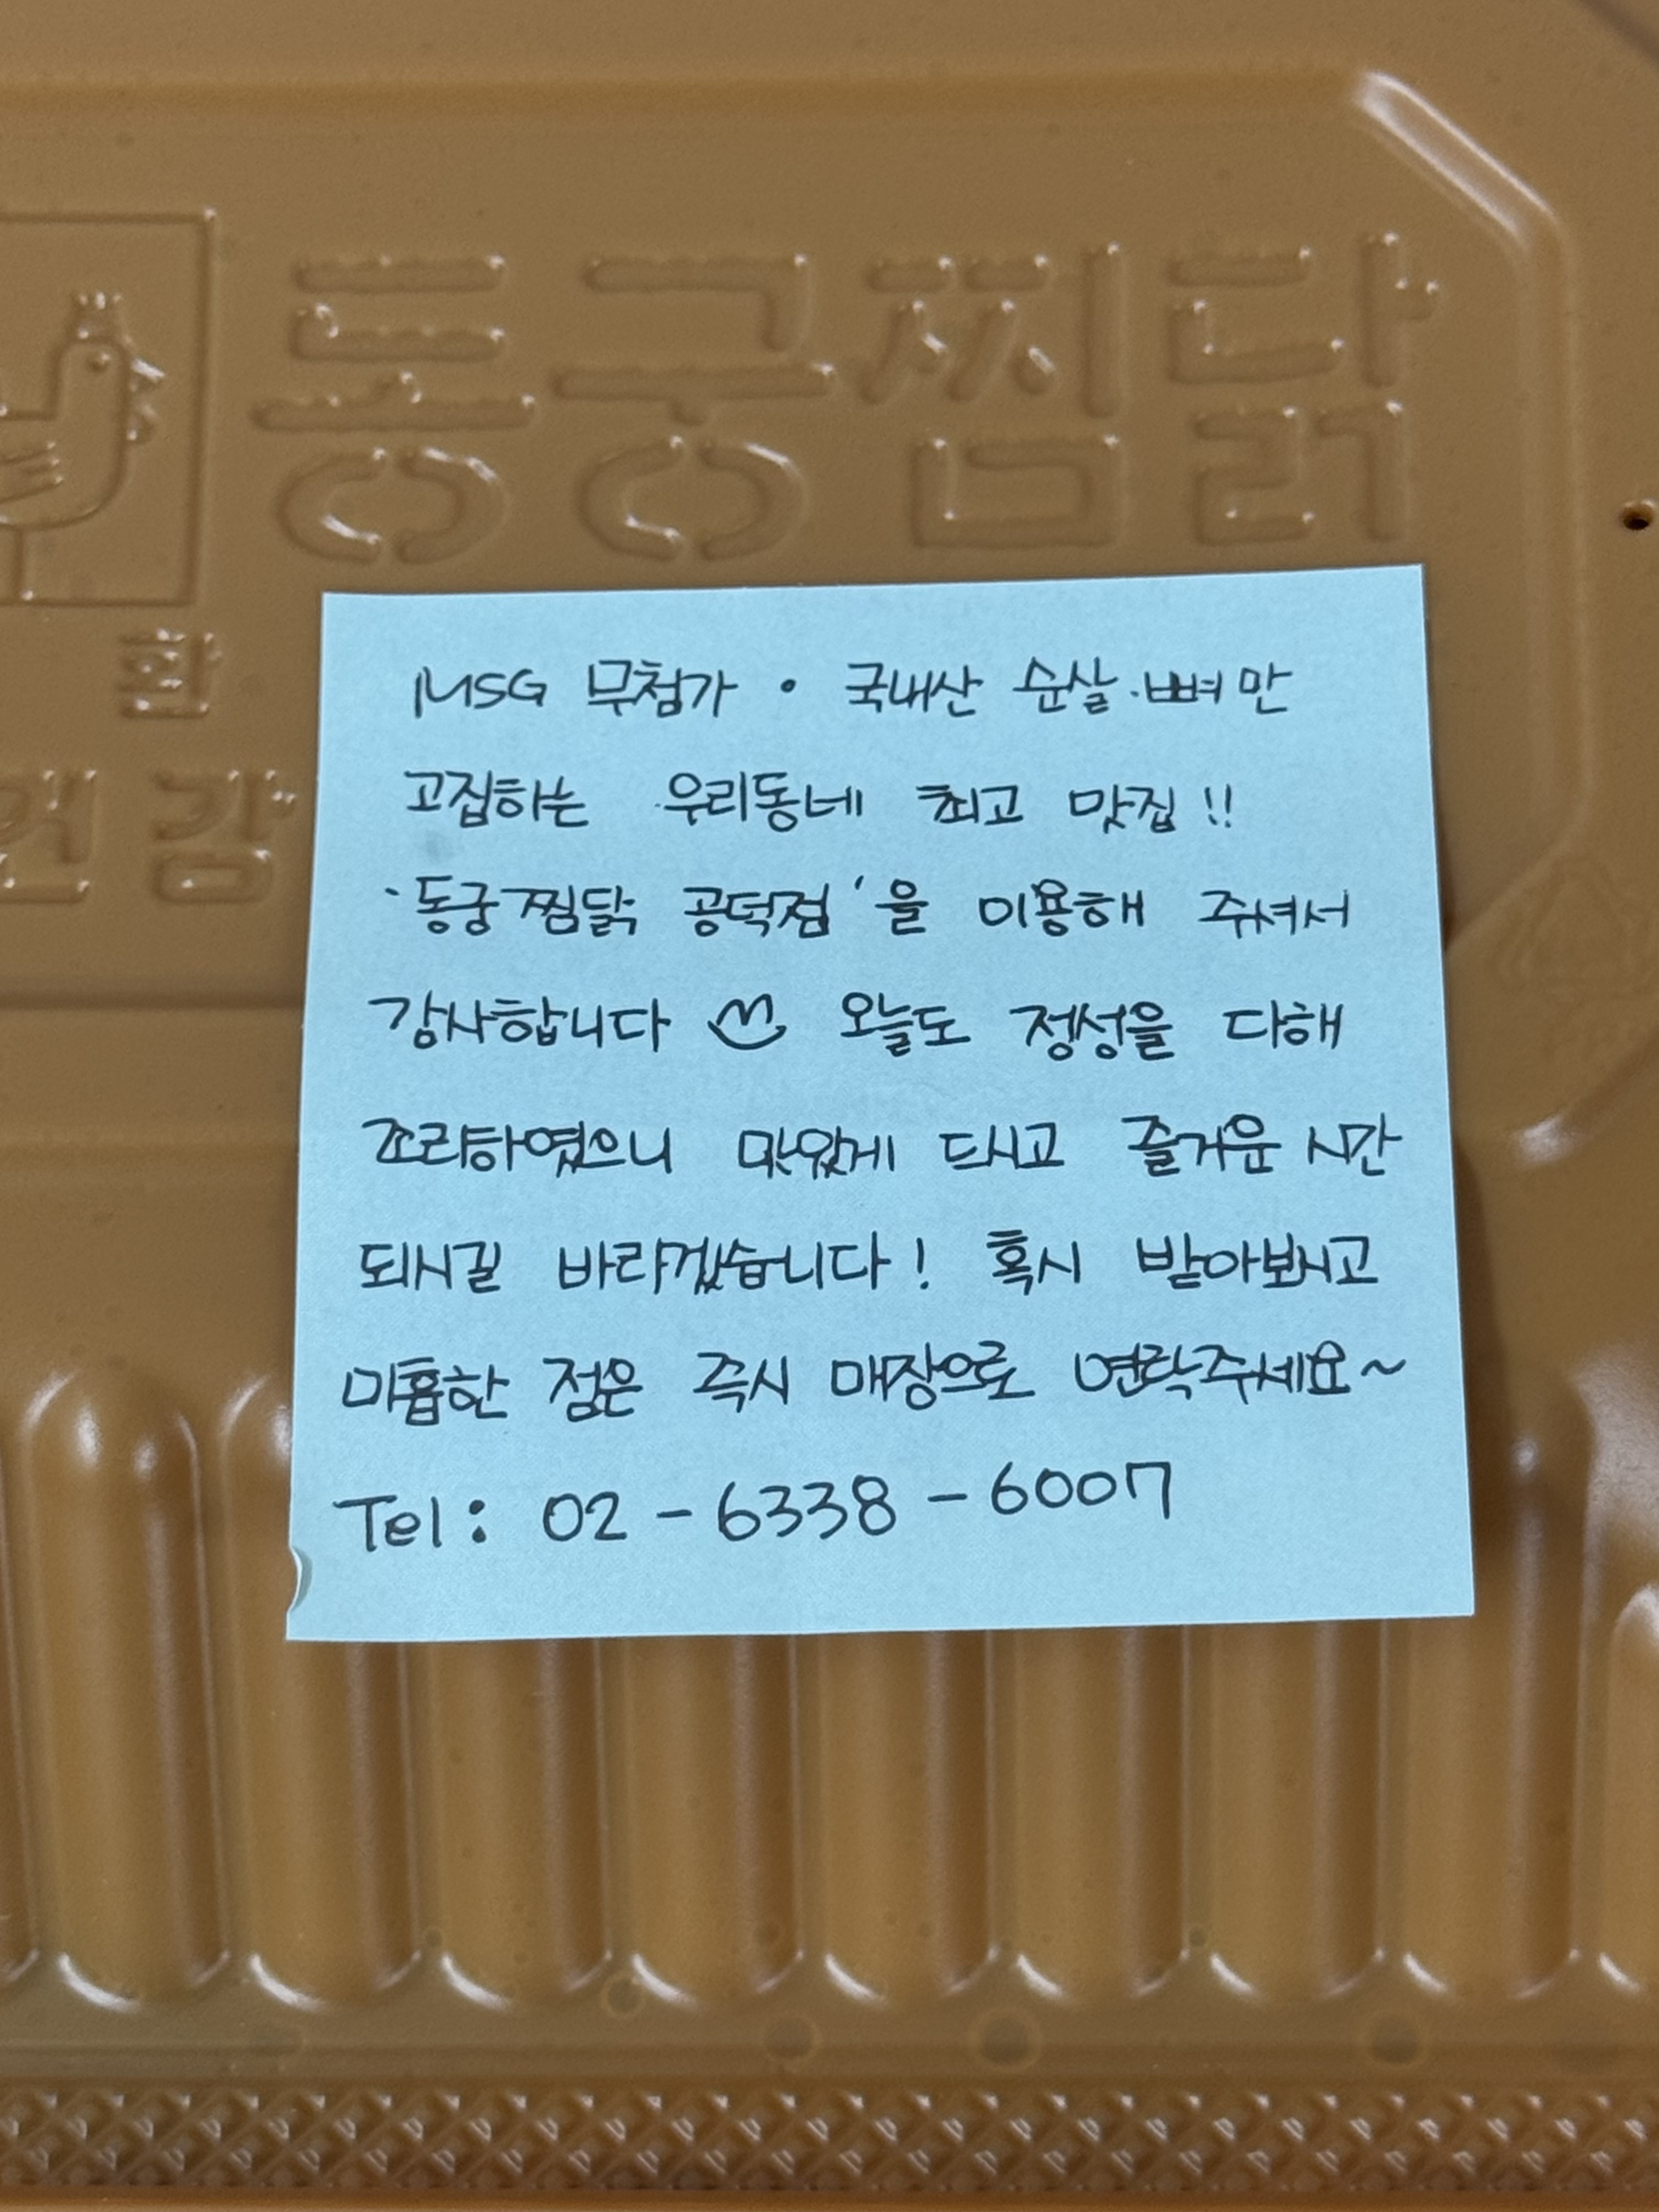 동궁찜닭
환
건강
MSG 무첨가 · 국내산 순살·뼈만
고집하는 우리동네 최고 맛집!!
'동궁찜닭 공덕점'을 이용해 주셔서
감사합니다 오늘도 정성을 다해
조리하였으니 맛있게 드시고 즐거운 시간
되시길 바라겠습니다! 혹시 받아보시고
미흡한 점은 즉시 매장으로 연락주세요~
Tel: 02-6338-6007